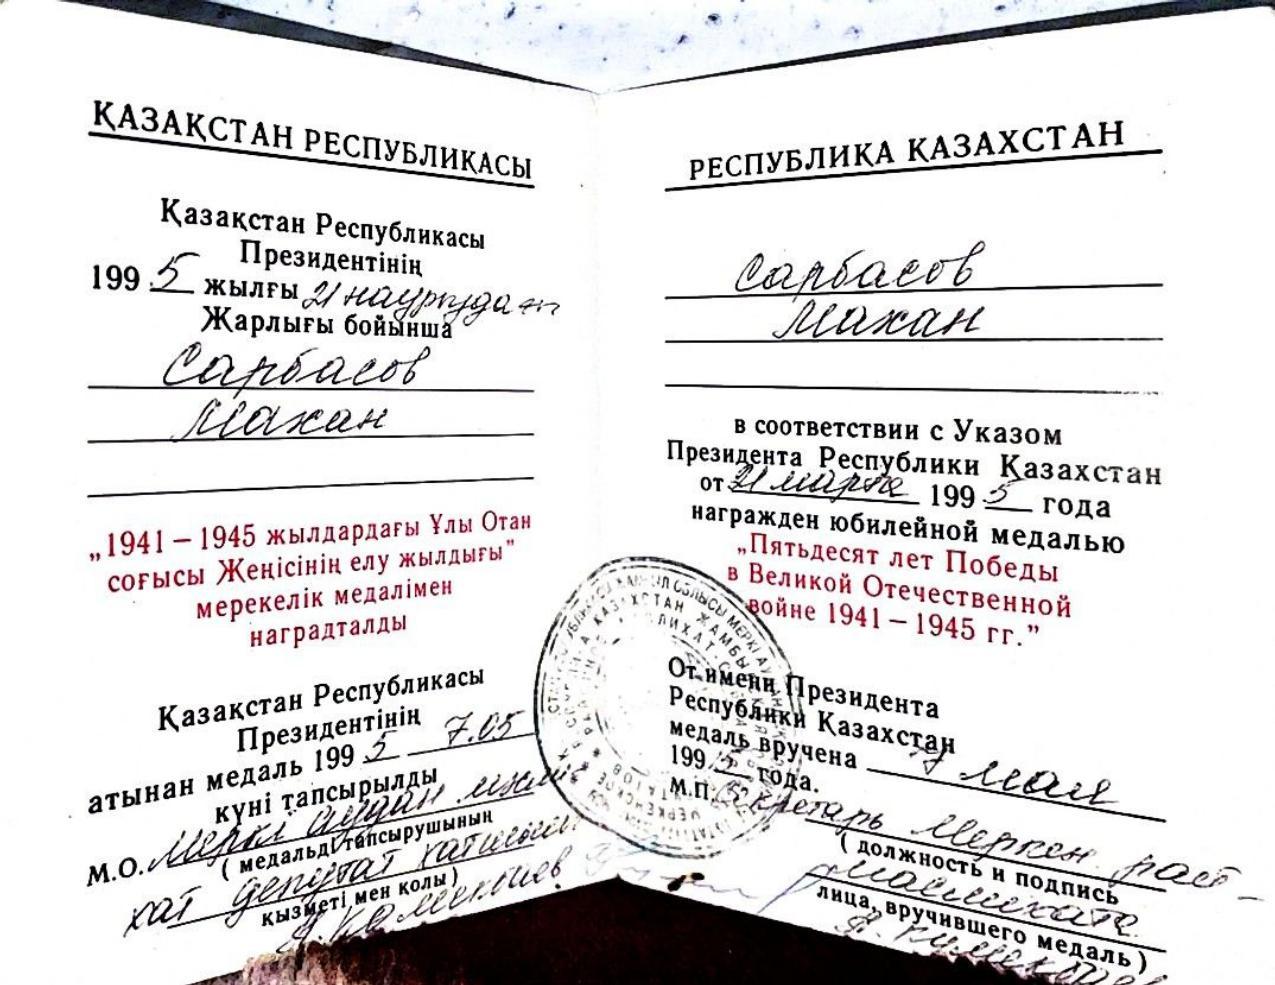 ҚАЗАҚСТАН РЕСПУБЛИКАСЫ
Қазақстан Республикасы
Президентінің
1995 жылғы 21 наурыздағы
Жарлығы бойынша
Сарбасов
Махан
„1941 – 1945 жылдардағы Ұлы Отан
соғысы Жеңісінің елу жылдығы"
мерекелік медалімен
наградталды
Қазақстан Республикасы
Президентінің
атынан медаль 1995 7.05
күні тапсырылды
М.О. Меркі аудан
( медальді тапсырушының
хат депутат
қызметі мен қолы )
РЕСПУБЛИКА ҚАЗАХСТАН
Сарбасов
Махан
в соответствии с Указом
Президента Республики Қазахстан
от 21 марта 1995 года
награжден юбилейной медалью
„Пятьдесят лет Победы
в Великой Отечественной
войне 1941 – 1945 гг."
От имени Президента
Республики Қазахстан
медаль вручена 7 мая
1995 года.
М.П. Секретарь Меркен. рай-
( должность и подпись
маслихата
лица, вручившего медаль )